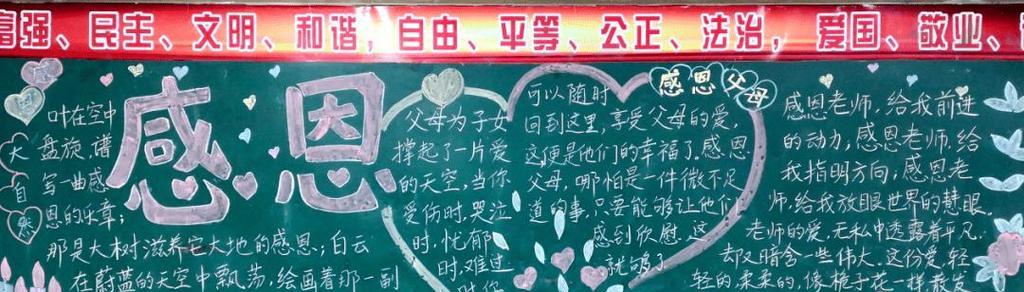 富强、民主、文明、和谐，自由、平等、公正、法治，爱国、敬业、
感恩
感
恩
大
自
然
叶在空中
盘旋，谱
写一曲感
恩的乐章；
那是大树滋养它大地的感恩，白云
在蔚蓝的天空中飘荡，绘画着那一副
父母为子女
撑起了一片爱
的天空，当你
受伤时，哭泣
时，忧郁
时，难过
时，你
感恩父母
可以随时
回到这里，享受父母的爱
这便是他们的幸福了。感恩
父母，哪怕是一件微不足
道的事，只要能够让他们
感到欣慰，这
就够了
感恩老师，给我前进
的动力，感恩老师，给
我指明方向，感恩老
师，给我放眼世界的慧眼。
老师的爱，无私中透露着平凡，
却又暗含一些伟大。这份爱，轻
轻的，柔柔的，像栀子花一样散发